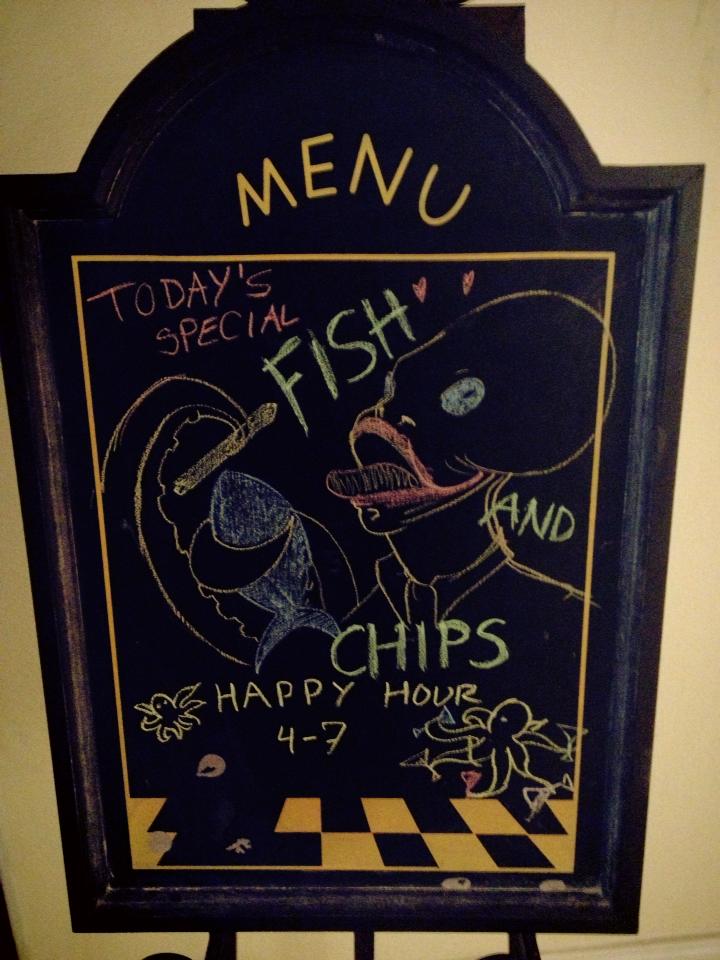 MENU
TODAY'S
SPECIAL
FISH
AND
CHIPS
HAPPY HOUR
4-7